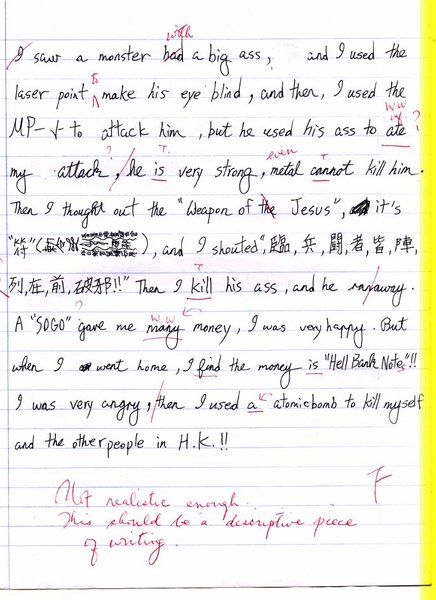 with
I saw a monster had a big ass, and I used the
to
laser point make his eye blind, and then, I used the
WW ?
MP-5 to attack him, but he used his ass to ate
? T. even T
my attack, he is very strong, metal cannot kill him.
Then I thought out the "Weapon of the Jesus", it's
"符"( ), and I shouted", 臨, 兵, 鬪, 者, 皆, 陣,
T
列, 在, 前, 破邪!!" Then I kill his ass, and he runaway.
? WW
A "SOGO" gave me many money, I was very happy. But
when I went home, I find the money is "Hell Bank Notes"!!
I was very angry, then I used a atomicbomb to kill myself
and the other people in H.K.!!
Not realistic enough. F
This should be a descriptive piece
of writing.